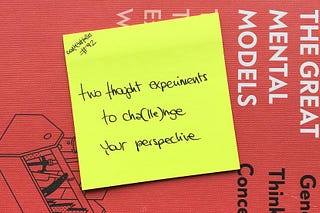 #92
two thought experiments
to cha(lle)nge
your perspective
THE GREAT
MENTAL
MODELS
Gen
Think
Conce